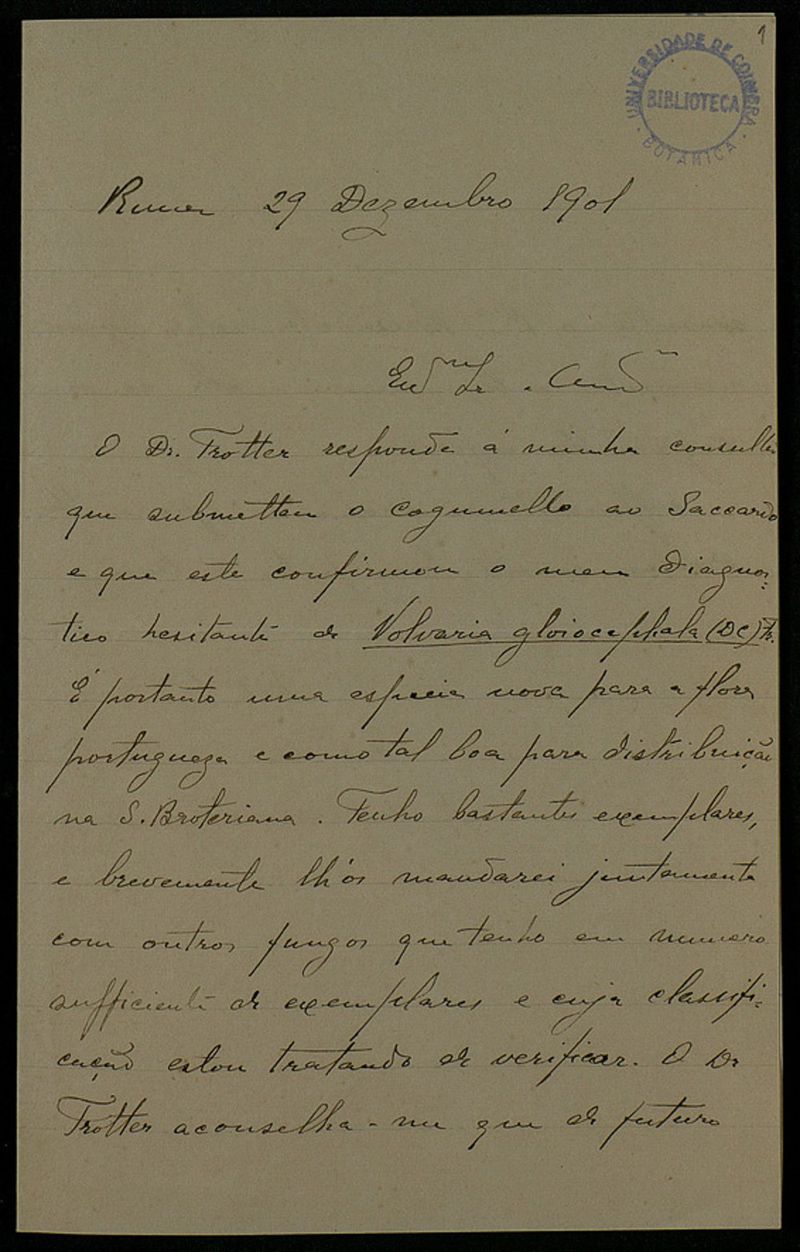 1
UNIVERSIDADE DE COIMBRA
BIBLIOTECA
BOTANICA
29 Dezembro 1901
O Dr. Trotter responde á minha consulta
que submetteu o cogumello ao Saccardo
e que este confirmou o meu diagnos-
tico hesitante de Volvaria gloiocephala (DC) Fr.
É portanto uma especie nova para a flora
portugueza e como tal boa para distribuição
na S. Broteriana. Tenho bastantes exemplares,
e brevemente lh'os mandarei juntamente
com outros fungos que tenho em numero
sufficiente de exemplares e cuja classifi-
cação estou tratando de verificar. O Dr
Trotter aconselha-me que de futuro